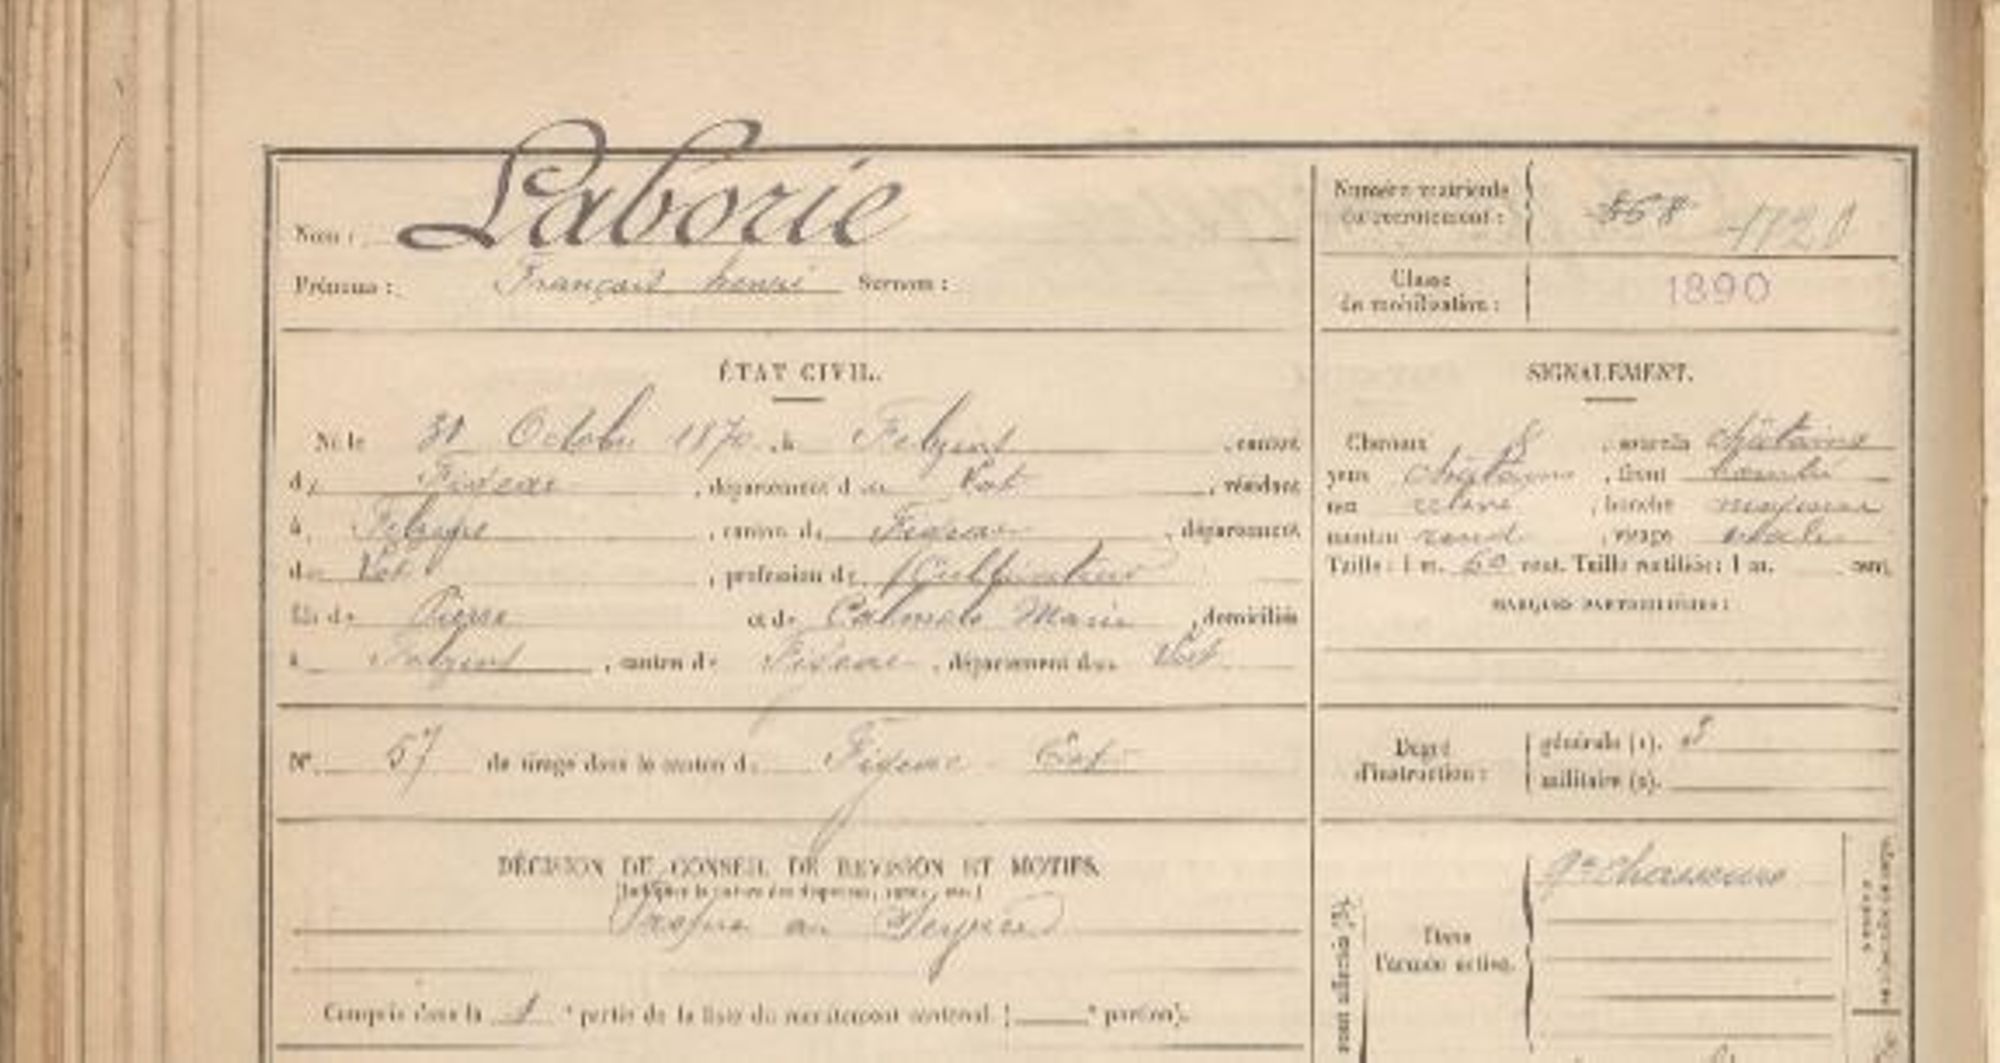 Laborie
Nom :
Prénoms : François henri Surnom :
Numéro matricule
du recrutement : 868 1720
Classe
de mobilisation : 1890
ÉTAT CIVIL.
Né le 31 Octobre 1870, à Felzins, canton
de Figeac, département du Lot, résidant
à Felzins, canton de Figeac, département
du Lot, profession de Cultivateur
fils de Pierre et de Calmels Marie, domiciliés
à Felzins, canton de Figeac, département du Lot
N° 57 de tirage dans le canton de Figeac Est
SIGNALEMENT.
Cheveux &, sourcils châtains
yeux châtains, front bombé
nez, bouche moyenne
menton rond, visage ovale
Taille : 1 m. 60 cent. Taille rectifiée : 1 m. cent.
MARQUES PARTICULIÈRES :
Degré
d'instruction :
générale (1). 3
militaire (2).
DÉCISION DU CONSEIL DE REVISION ET MOTIFS.
au
Compris dans la 1e partie de la liste du recrutement cantonal ( e portion).
Dans
l'armée active.
9e chasseurs